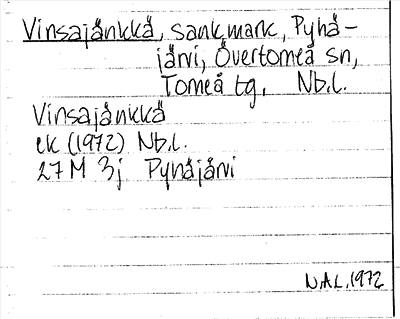 Vinsajänkkä, sankmark, Pyhä-
järvi, Övertorneå sn,
Torneå tg, Nb.l.
Vinsajänkkä
ek (1972) Nb.l.
27M 3j Pyhäjärvi
N.A.L. 1972